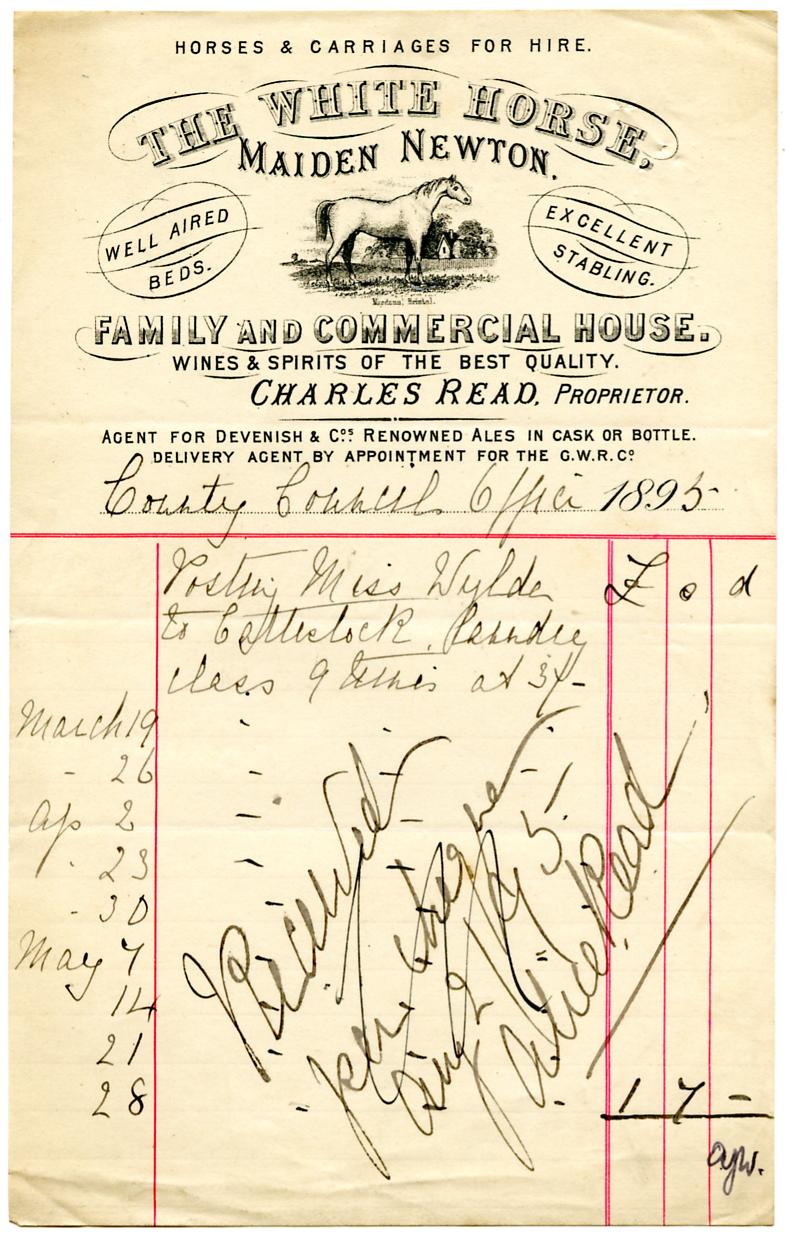 HORSES & CARRIAGES FOR HIRE.
THE WHITE HORSE,
MAIDEN NEWTON.
WELL AIRED
BEDS.
EXCELLENT
STABLING.
FAMILY AND COMMERCIAL HOUSE.
WINES & SPIRITS OF THE BEST QUALITY.
CHARLES READ, PROPRIETOR.
AGENT FOR DEVENISH & Cos RENOWNED ALES IN CASK OR BOTTLE.
DELIVERY AGENT BY APPOINTMENT FOR THE G.W.R. Co
County Council Office 1895
Posting Miss Wylde £ s d
to Cattistock Laundry
class 9 times at 3/-
March 19 "
" 26 "
Ap 2 "
" 23 "
" 30 "
May 7
14
21
28 1 7 -
Received
per cheque
Augt 2 95
Alice Read